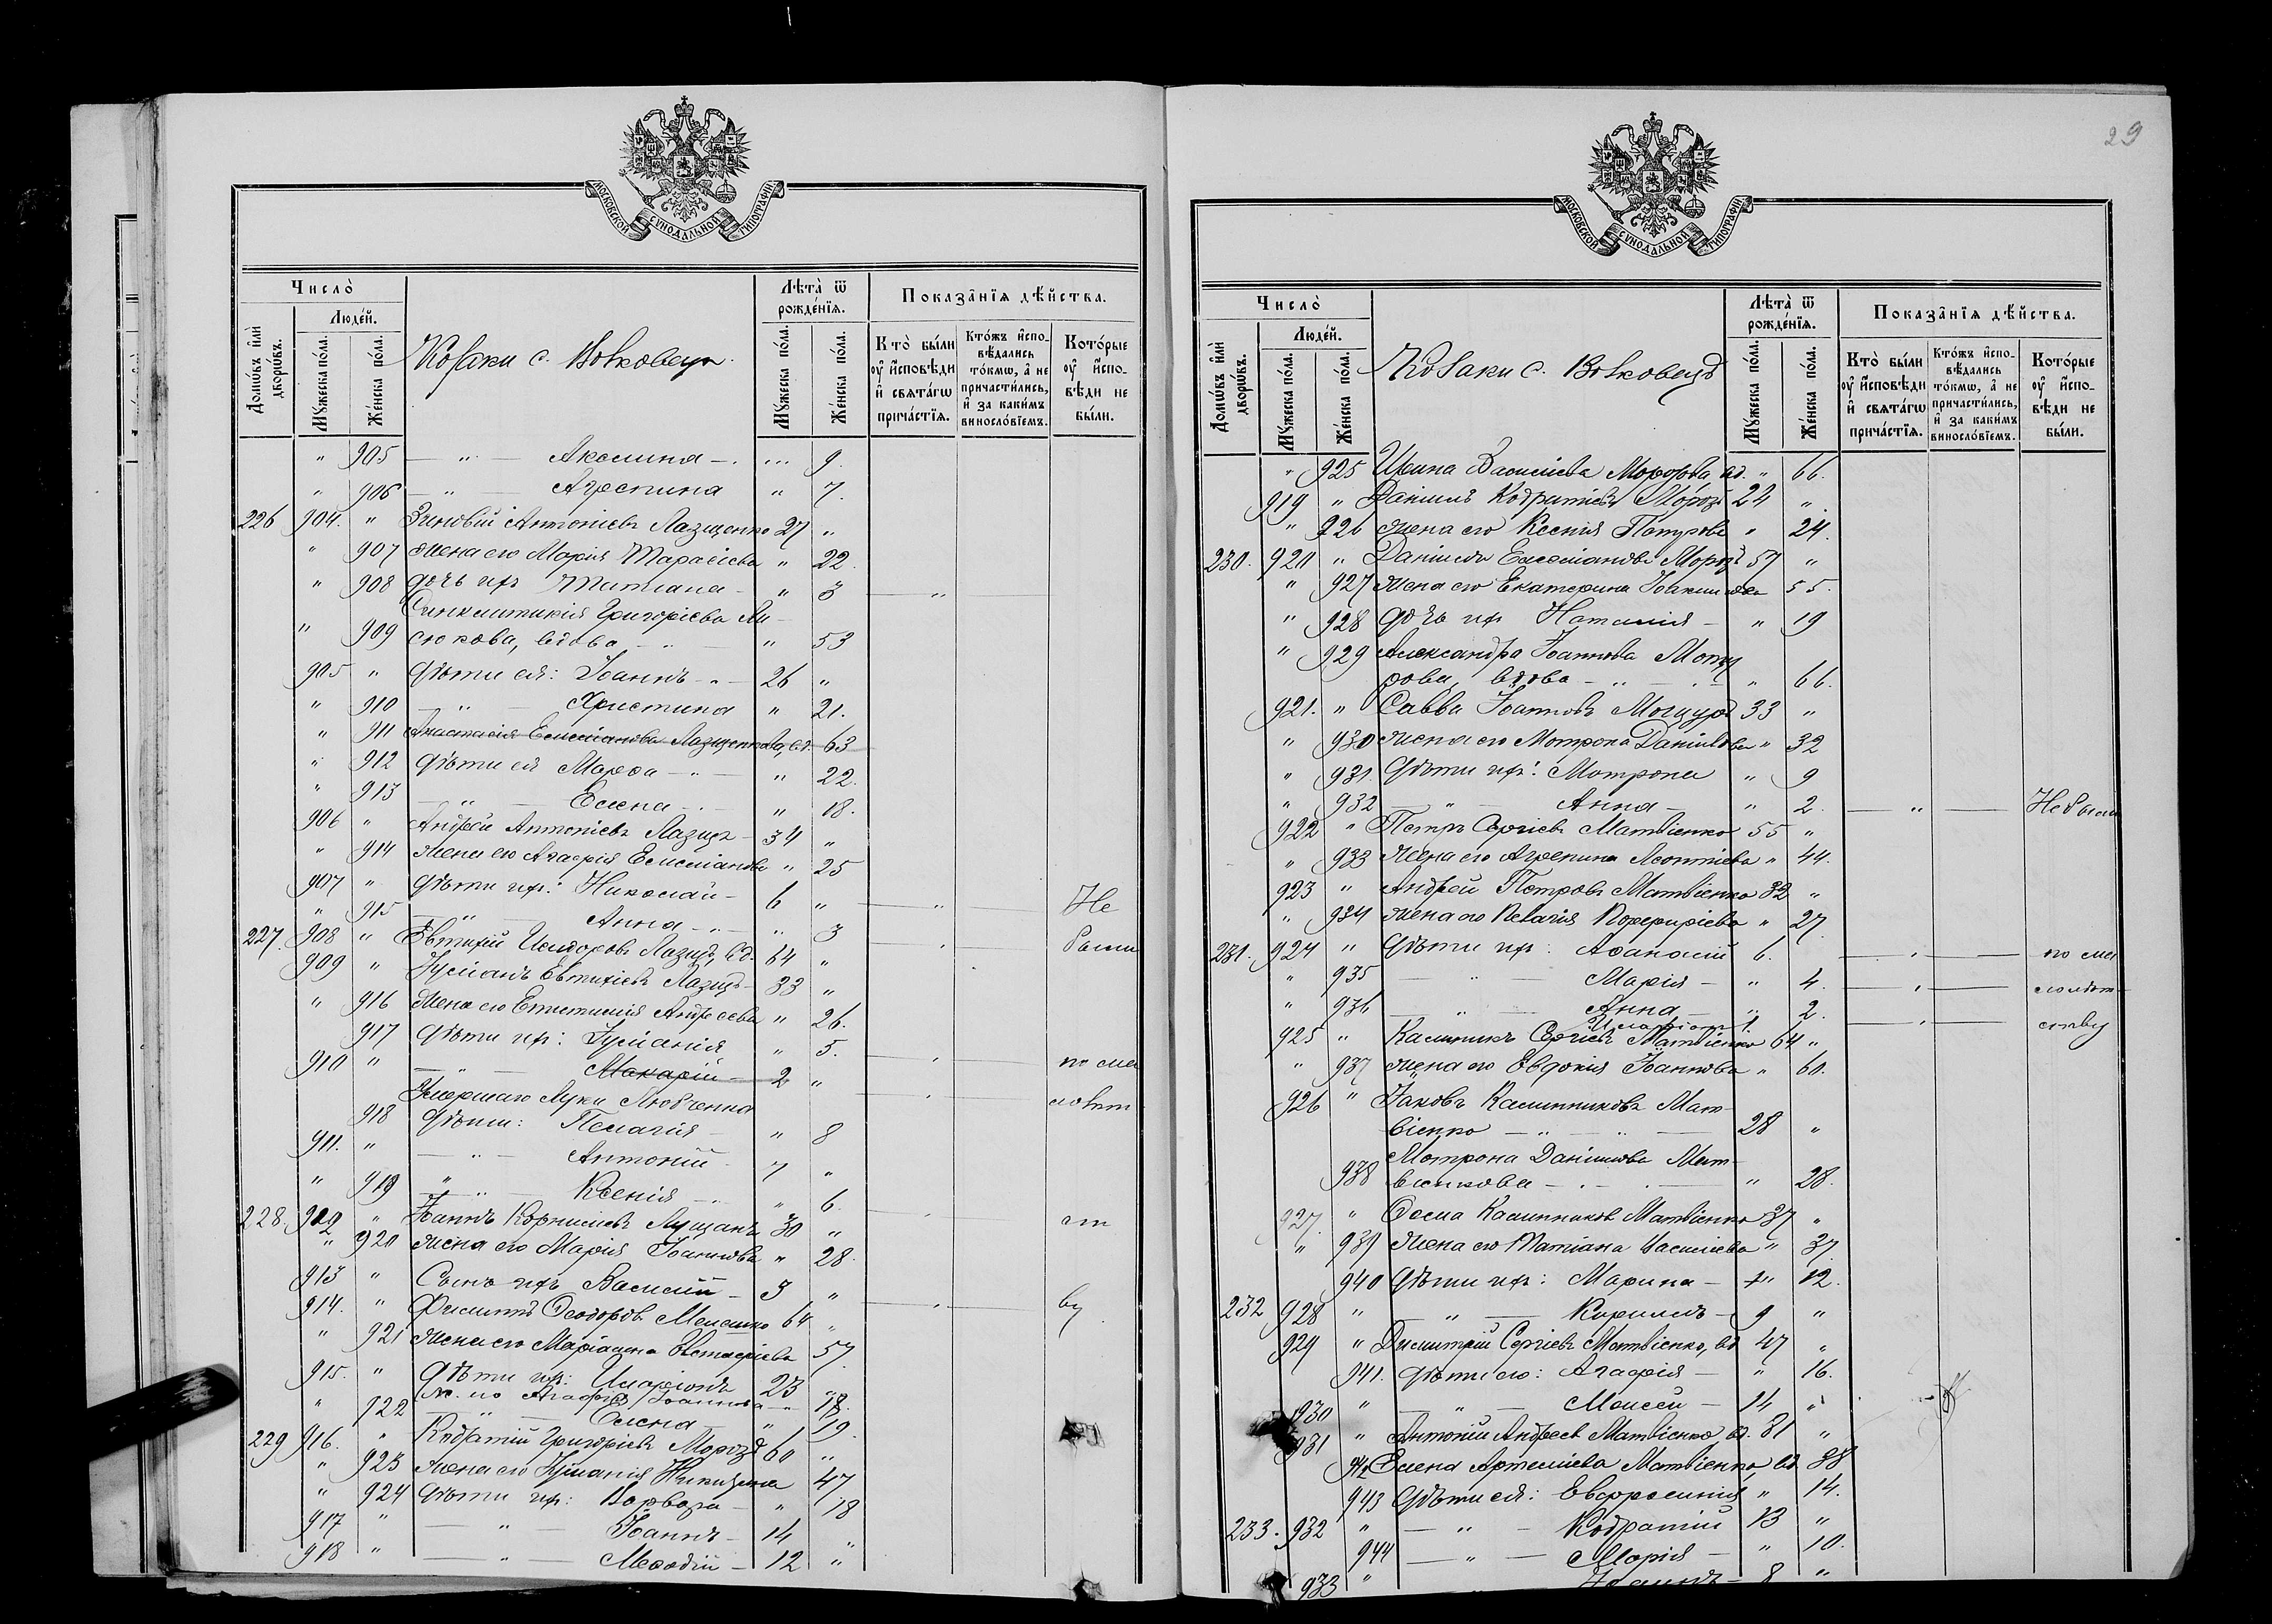 29
МОСКОВСКОЙ СѴНОДАЛЬНОЙ ТИПОГРАФІИ
Число̀
Домѡ́въ и҆лѝ дворѡ́въ.
Люде́й.
Мꙋ́жеска по́ла.
Же́нска по́ла.
Козаки с. Волковецъ
Лѣ́та ѿ рожде́нїѧ.
Мꙋ́жеска по́ла.
Же́нска по́ла.
Показа̑нїѧ дѣ́йства.
Кто̀ бы́ли оу҆ и҆сповѣ́ди и҆ свѧта́гѡ прича́стїѧ.
Кто́жъ и҆спо-вѣ́дались то́кмѡ, а҆ не причасти́лись, и҆ за каки́мъ винословїемъ.
Кото́рые оу҆ и҆спо-вѣ́ди не бы́ли.
" 905 — " — Акилина — . ... 9.
" 906 — " — Агрепина " 7.
226 904. " Зиновій Антоніевъ Лазуценко 27 "
" 907 жена его Марія Тарасіева " 22.
" 908 дочь ихъ Татіана — " 3 — "
Синклитикія Григоріева Ли-
" 909 сюкова, вдова — " — " 53
905 " дѣти ея: Іоаннъ — " — 26 "
" 910 — " — Христина " 21.
" 911 Анастасія Емиліанова вд. 63
" 912 дѣти ея Марѳа — " — " 22.
" 913 — " — Елена — . — " 18.
906 " Андрей Антоніевъ Лазуцъ — 34 "
" 914 жена его Агафія Емиліанова " 25
907 " дѣти ихъ: Николай — 6 " — " — Не
" 915 — " — Анна — " — " 3 — " — были
227. 908 " Евтихій Исидоровъ Лазуцъ, вд. 64 "
909 " Іуліанъ Евтихіевъ Лазуцъ — 33 "
" 916 жена его Андреева " 26.
917 дѣти ихъ: Іуліанія " 5. — " — по ма
910 " — " — Макарій — 2 " — " — лолѣт
Умершаго Луки
918 дѣти: Пелагія — " 8
911. " — " — Антоній — 7 "
" 919 — " — Ксенія — . " 6. — " — ст
228. 912 " Іоаннъ Корниліевъ 30 "
" 920 жена его Марія Іоаннова " 28.
913 " Сынъ ихъ Василій — 3 " — " — ву
914. " Филиппъ Ѳеодоровъ 64 "
" 921 жена его Маріанна Евстафіева 57.
915. " дѣти ихъ: Иларіонъ 23 "
ж. его Агафія Іоаннова — 18.
" 922 — " — Елена — " 19.
229 916. " Кодратій Григоріевъ Морозъ 60 "
" 923 жена его Іуліанія Никитина 47
" 924 дѣти ихъ: Варвара — " 18
917 " — " — Іоаннъ — 14 "
918 " — " — Меѳодій — 12 "
МОСКОВСКОЙ СѴНОДАЛЬНОЙ ТИПОГРАФІИ
Число̀
Домѡ́въ и҆лѝ дворѡ́въ.
Люде́й.
Мꙋ́жеска по́ла.
Же́нска по́ла.
Козаки с. Волковецъ
Лѣ́та ѿ рожде́нїѧ.
Мꙋ́жеска по́ла.
Же́нска по́ла.
Показа̑нїѧ дѣ́йства.
Кто̀ бы́ли оу҆ и҆сповѣ́ди и҆ свѧта́гѡ прича́стїѧ.
Кто́жъ и҆спо-вѣ́дались то́кмѡ, а҆ не причасти́лись, и҆ за каки́мъ винословїемъ.
Кото́рые оу҆ и҆спо-вѣ́ди не бы́ли.
" 925 Василіева Морозова вд. " 66.
919 " Даніилъ Кодратіевъ Морозъ 24 "
" 926 жена его Ксенія Петрова " 24.
230. 920 " Даніилъ Емиліановъ Морозъ 57 "
" 927 жена его Екатерина Іоакимова 55.
" 928 дочь ихъ Наталія — " 19
" 929 Александра Іоаннова Моцу
рова, вдова — " — " 66.
921. " Савва Іоанновъ Моцуръ 33 "
" 930 жена его Мотрона Даніилова " 32
" 931. дѣти ихъ: Мотрона " 9
" 932 — " — Анна — " 2. — " — Не были
922 " Петръ Сергіевъ Матвіенко 55 "
" 933 жена его Агрепина Леонтіева " 44.
923 " Андрей Петровъ Матвіенко 32 "
" 934 жена его Пелагія Порфиріева " 27.
231. 924 " дѣти ихъ: Аѳанасій 6. — " — по ма
" 935 — " — Марія — " 4. — " — лолѣт
" 936 — " — Анна — " 2. — " — ству
Иларіонъ 1.
925 " Калиникъ Сергіевъ Матвіенко 64 "
" 937 жена его Евдокія Іоаннова " 60.
926 " Іаковъ Калинниковъ Мат-
віенко — " — " — 28 "
938 Мотрона Даніилова Мат-
віенкова — . — " 28.
927. " Ѳома Калинниковъ Матвіенко 37 "
" 939 жена его Татіана Василіева " 37.
940 дѣти ихъ: Марина — " 12.
232 928 " — " — Кириллъ — 9 "
929 " Димитрій Сергіевъ Матвіенко, вд 47 "
941. дѣти его: Агафія — " 16.
930 " — " — Моисей — 14 "
931 " Антоній Андреевъ Матвіенко вд. 31 "
942 Елена Артеміева Матвіенко, вд 38
943 дѣти ея: Евфросинія " 14.
233. 932 " — " — Кодратій 13 "
944 — " — Марія — " 10.
933 " Іоаннъ — 8 "